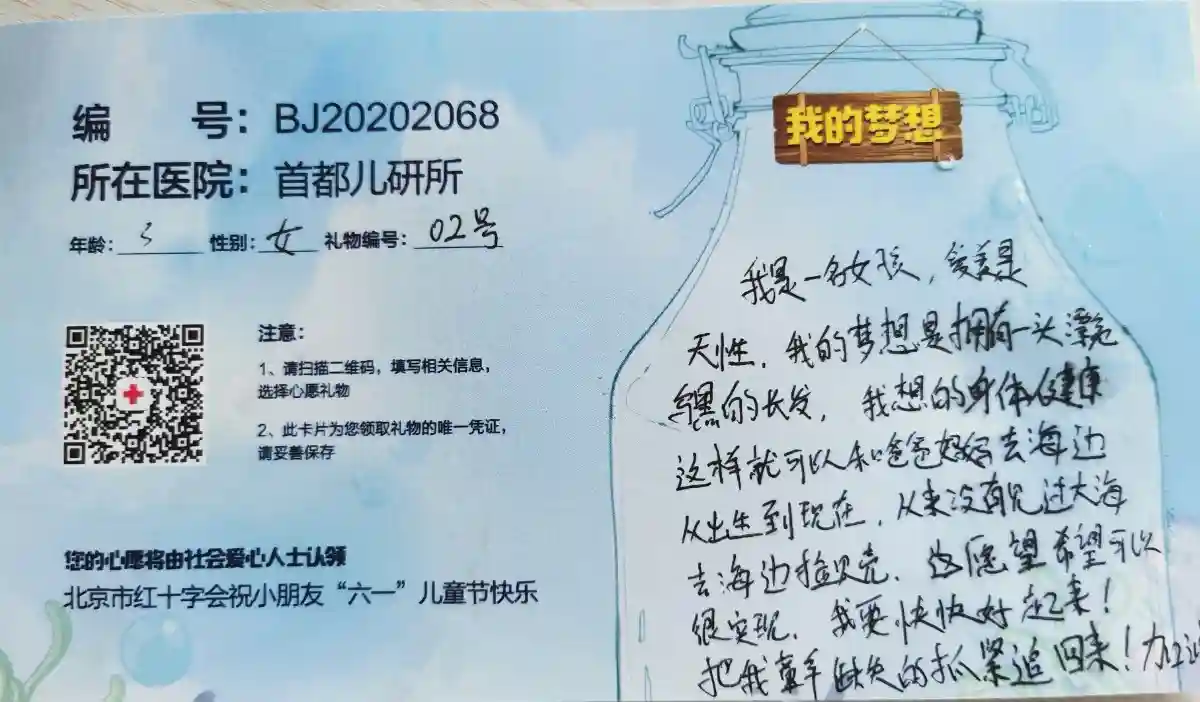 编 号：BJ20202068
所在医院：首都儿研所
年龄：3 性别：女 礼物编号：02号
注意：
1、请扫描二维码，填写相关信息，
选择心愿礼物
2、此卡片为您领取礼物的唯一凭证，
请妥善保存
您的心愿将由社会爱心人士认领
北京市红十字会祝小朋友“六一”儿童节快乐
我的梦想
我是一名女孩，爱美是
天性，我的梦想是拥有一头漂亮
乌黑的长发，我想的身体健康
这样就可以和爸爸妈妈去海边
从出生到现在，从来没有见过大海
去海边捡贝壳，这愿望希望可以
很实现，我要快快好起来！
把我童年缺失的抓紧追回来！加油